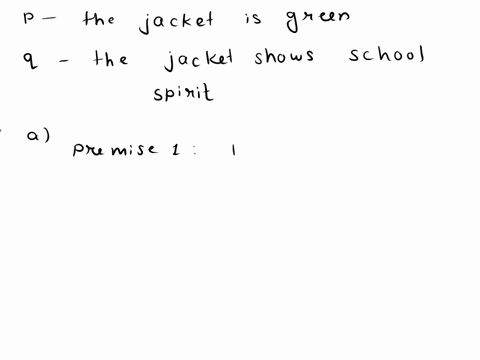 p - the jacket is green
q - the jacket shows school
spirit
a)
premise 1 :